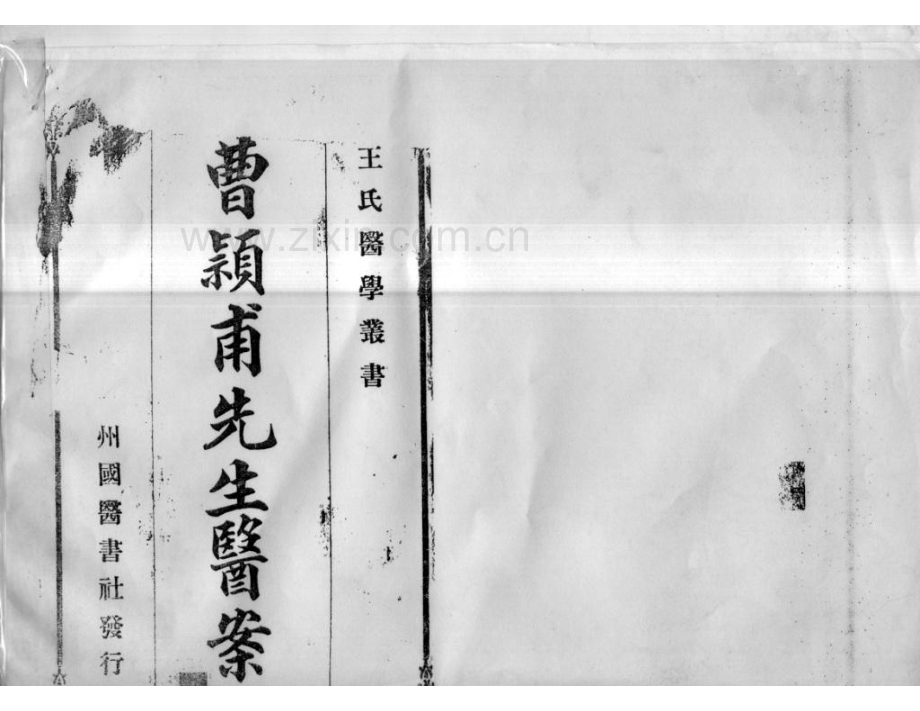 王氏醫學叢書
曹穎甫先生醫案
州國醫書社發行
www.zixin.com.cn